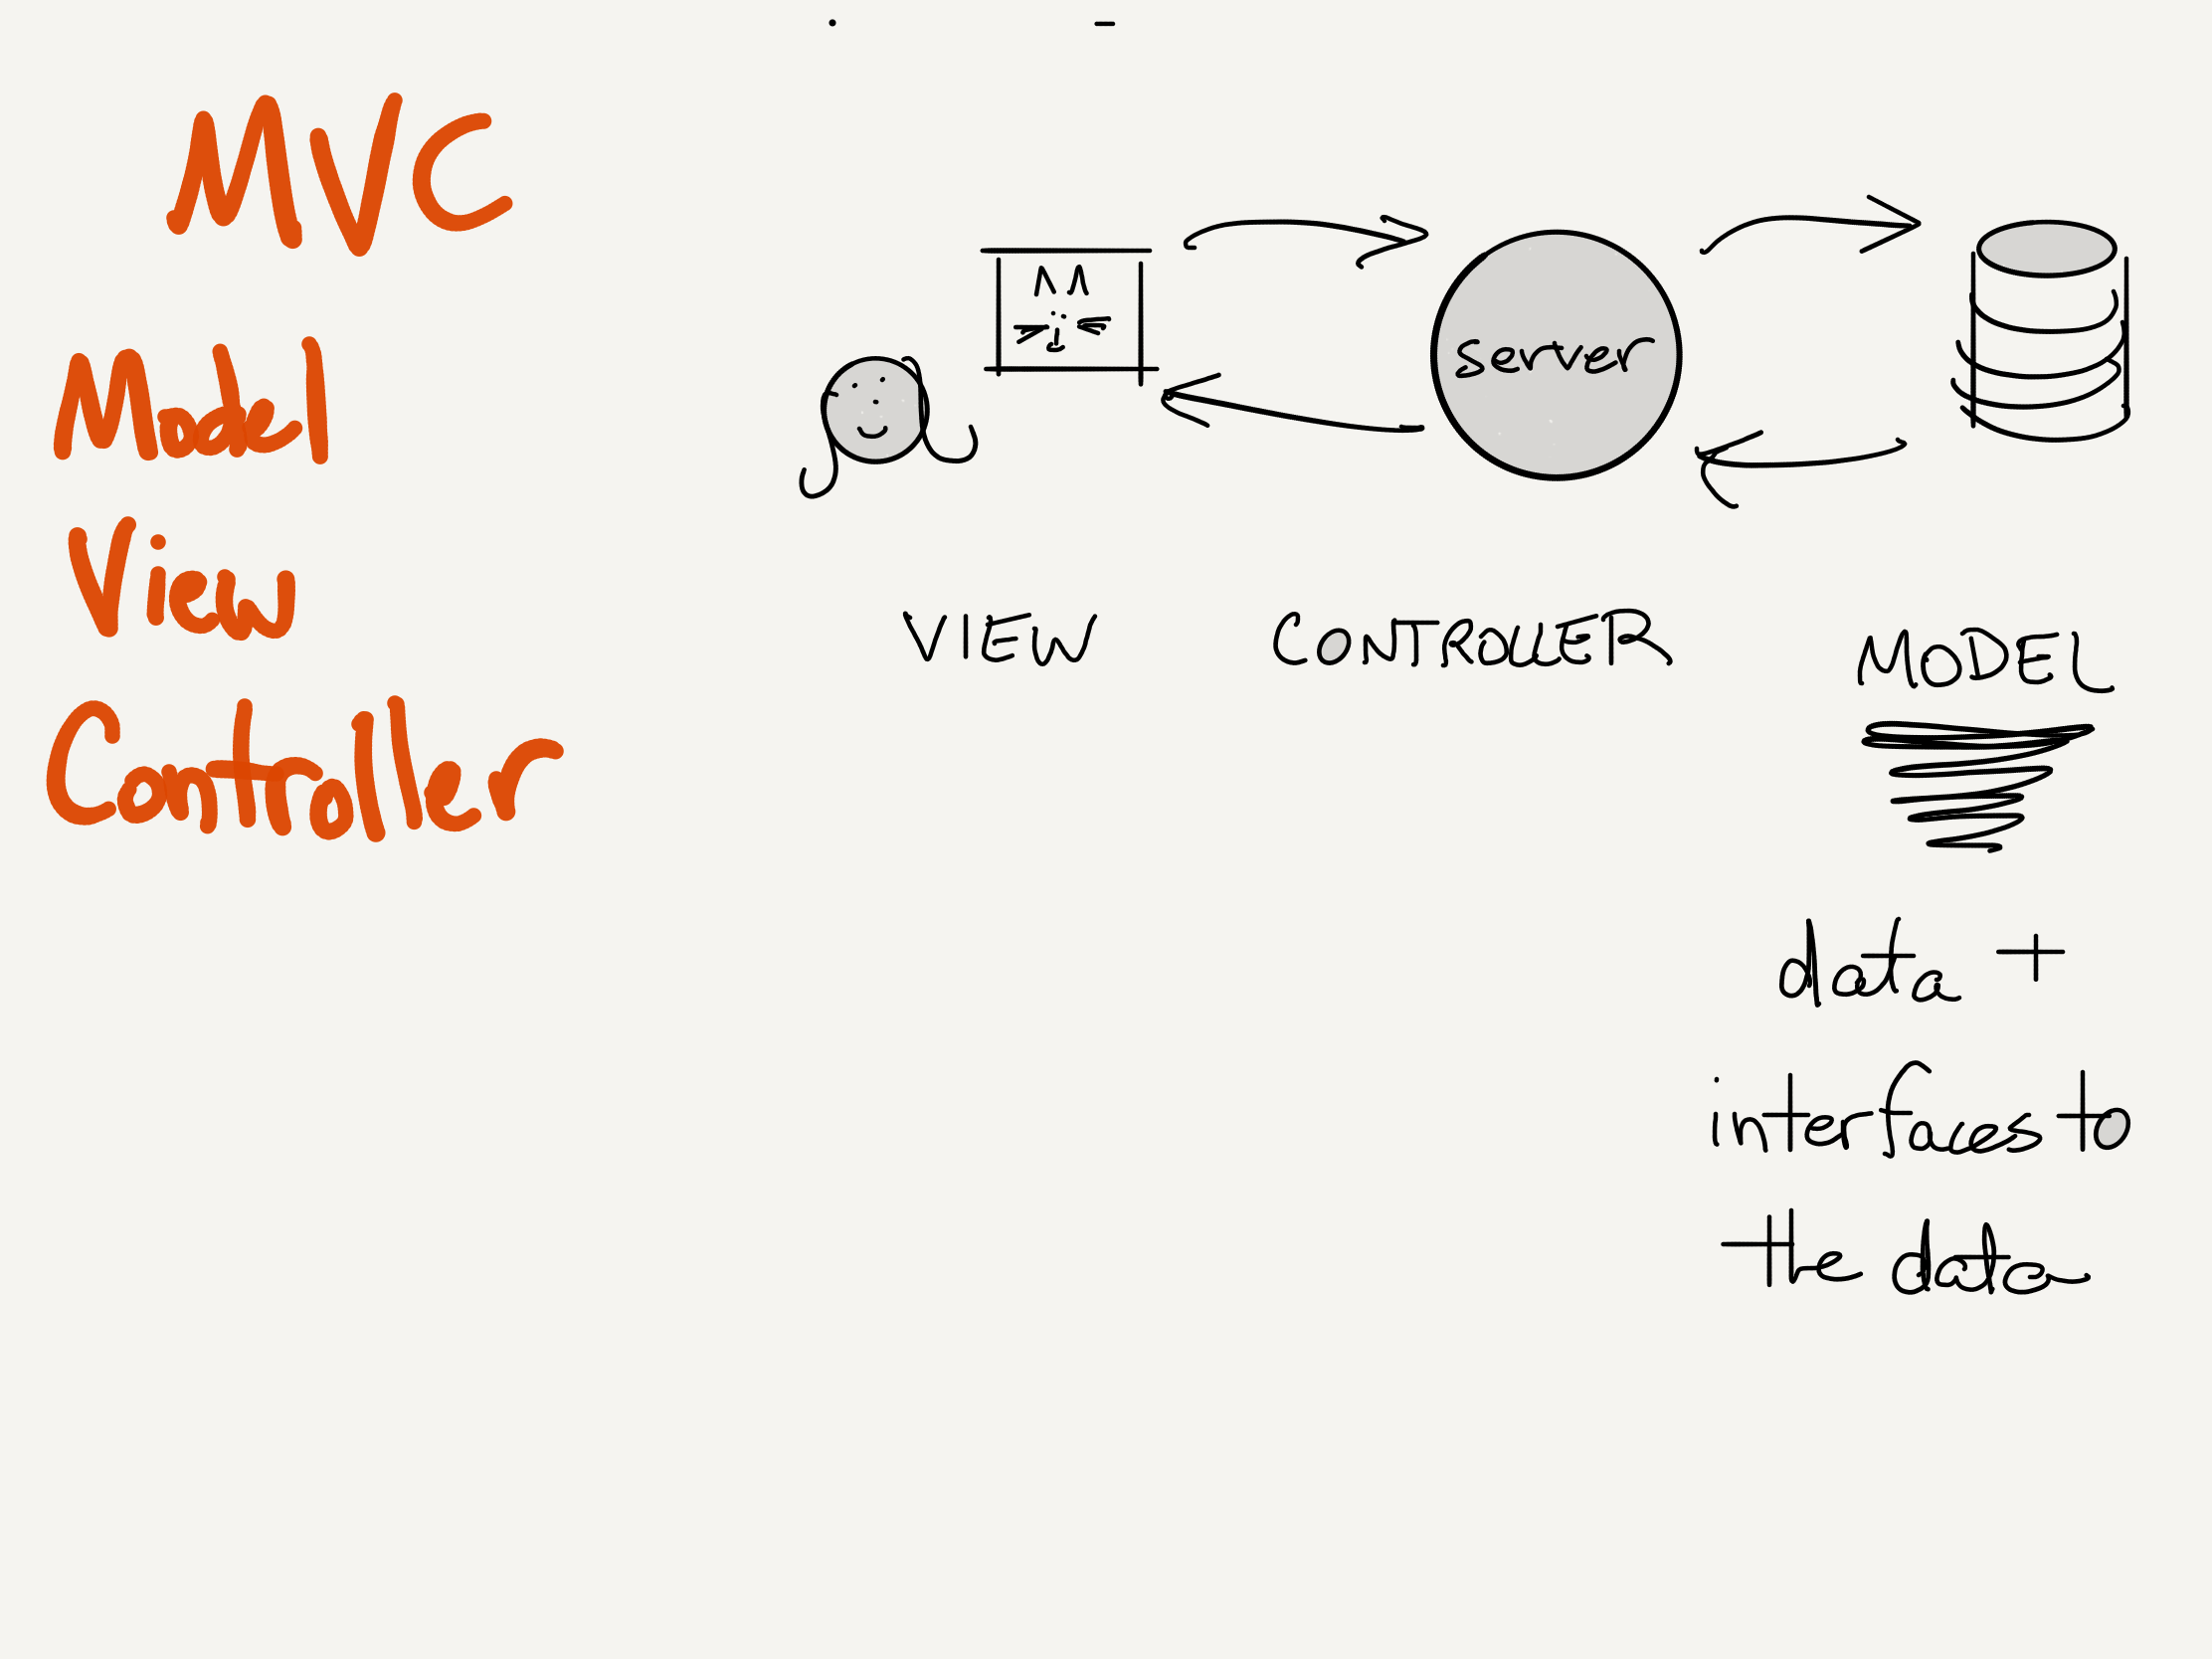 MVC
Model
View
Controller
server
VIEW CONTROLLER MODEL
data +
interfaces to
the data